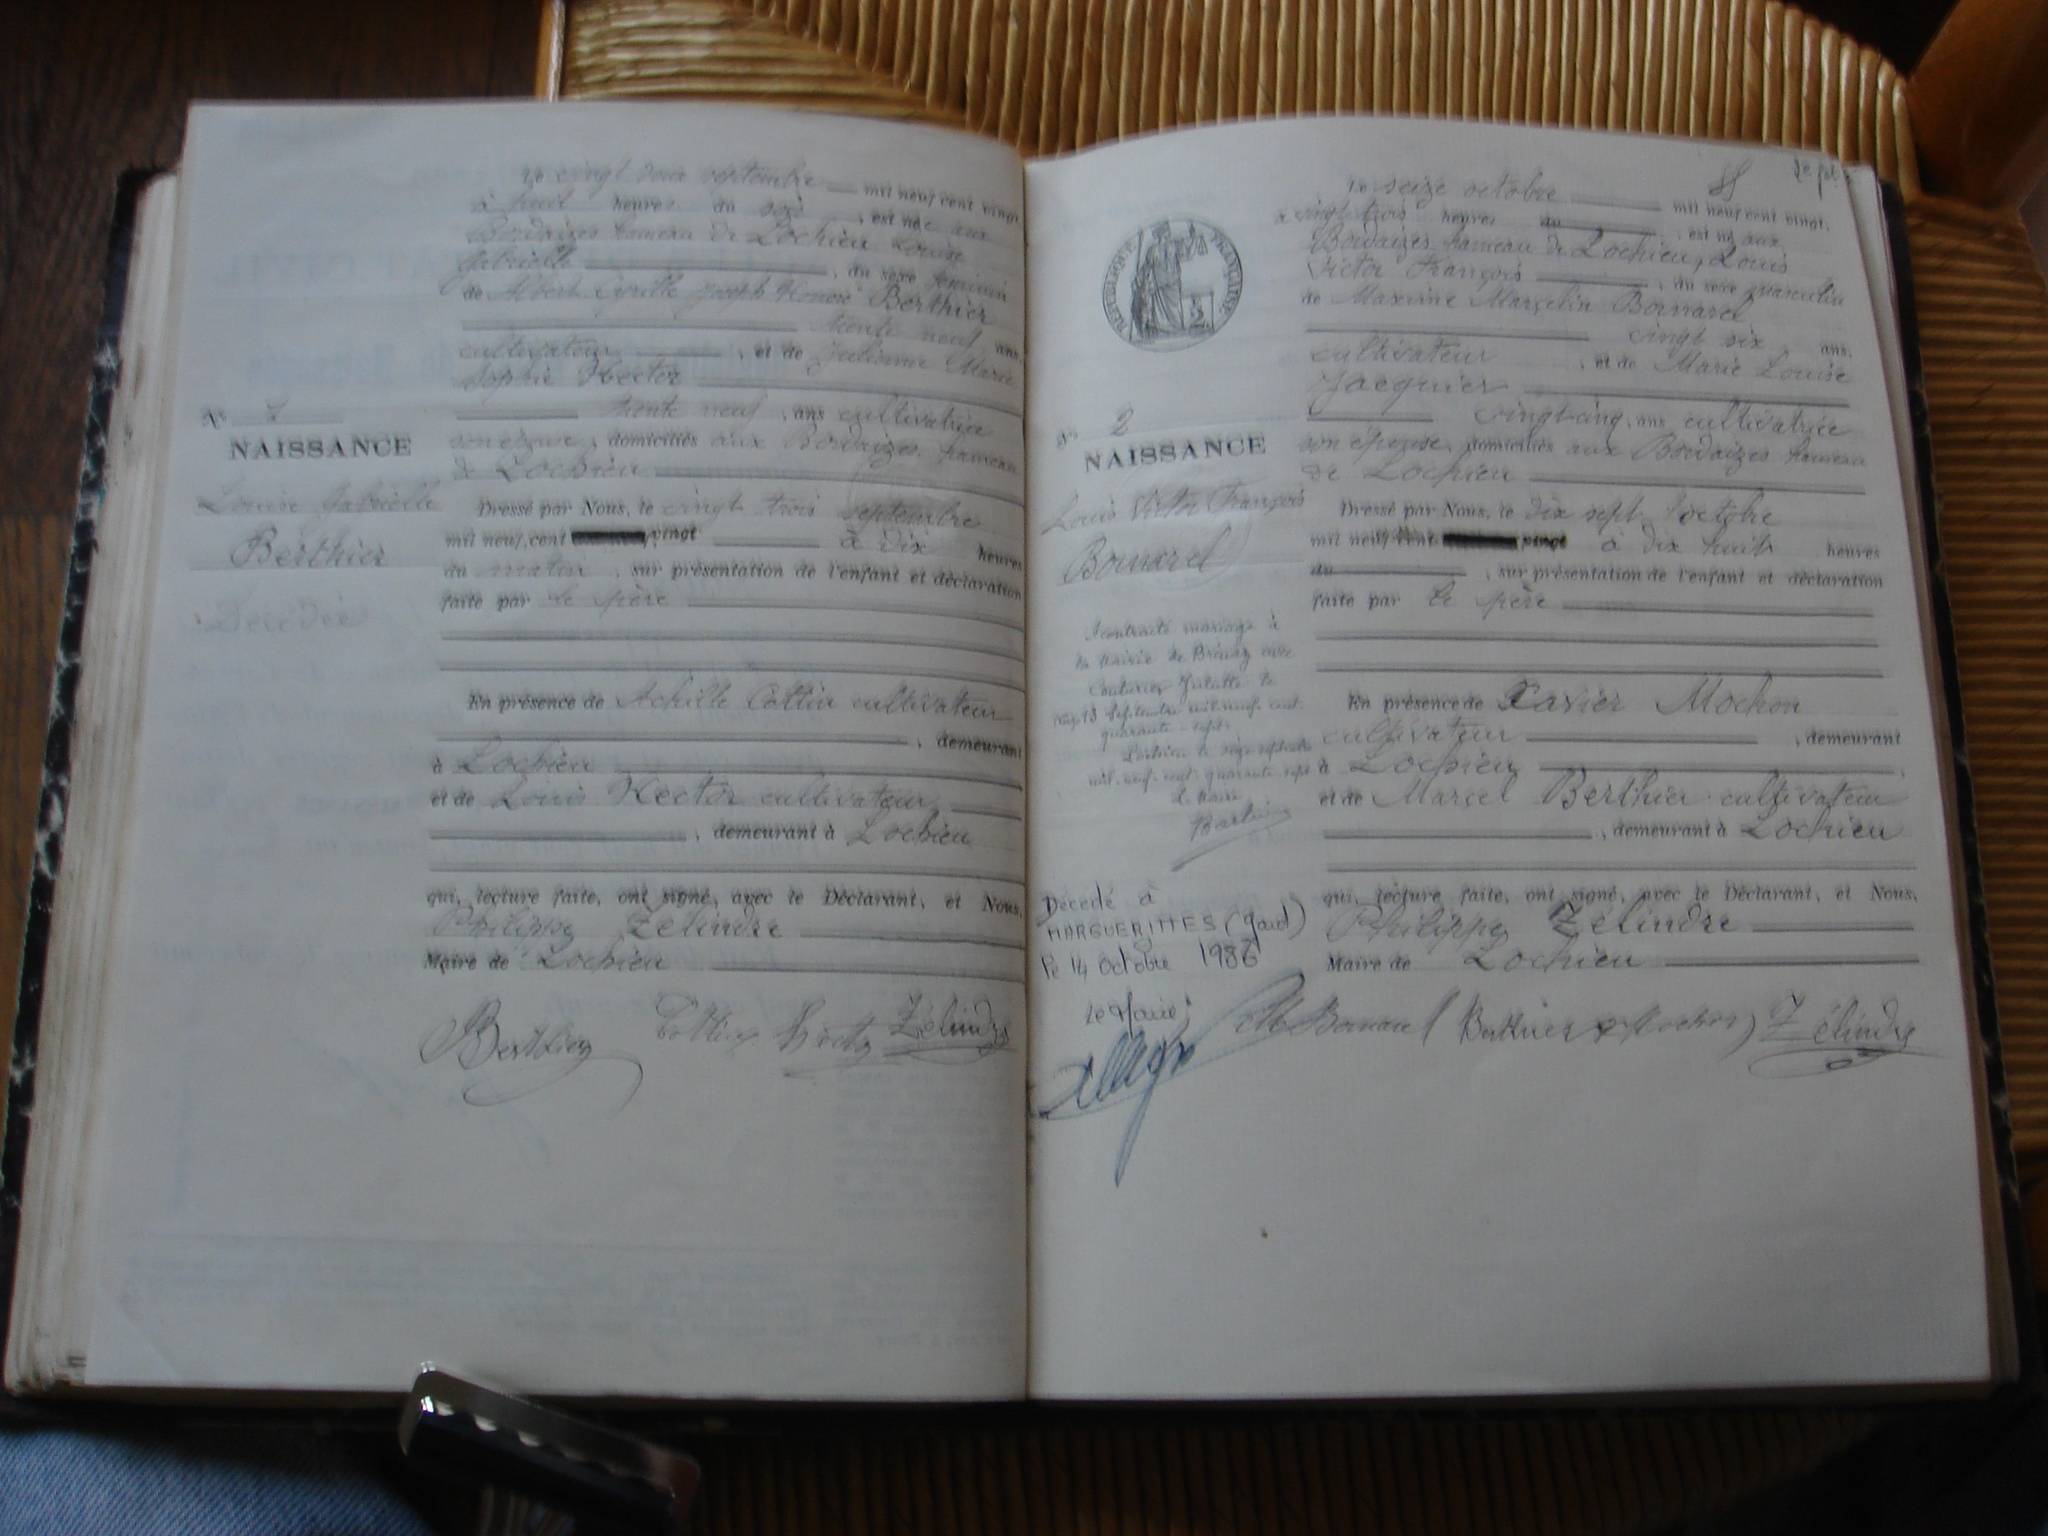 le vingt deux septembre mil neuf cent vingt,
à huit heures du soir, est née aux
Bordaizes hameau de Lochieu Louise
Gabrielle, du sexe féminin
de Albert Cyrille Joseph Honoré Berthier
trente neuf ans,
cultivateur, et de Julienne Marie
Sophie Hector
trente neuf, ans cultivatrice
son épouse, domiciliés aux Bordaizes hameau
de Lochieu
N°
NAISSANCE
Louise Gabrielle
Berthier
Décédée
Dressé par Nous, le vingt trois septembre
mil neuf cent vingt à dix heures
du matin, sur présentation de l'enfant et déclaration
faite par le père
En présence de Achille Cottin cultivateur
, demeurant
à Lochieu
et de Louis Hector cultivateur
, demeurant à Lochieu
qui, lecture faite, ont signé, avec le Déclarant, et Nous,
Philippe Zélindre
Maire de Lochieu
Berthier Cottin Hector Zélindre
le seize octobre mil neuf cent vingt,
à vingt trois heures du, est né aux
Bordaizes hameau de Lochieu, Louis
Victor François, du sexe masculin
de Maxime Marcelin Bornarel
vingt six ans,
cultivateur, et de Marie Louise
Jacquier
vingt cinq, ans cultivatrice
son épouse, domiciliés aux Bordaizes hameau
de Lochieu
RÉPUBLIQUE FRANÇAISE
N° 2
NAISSANCE
Louis Victor François
Bornarel
A contracté mariage à
la Mairie de Brénaz avec
Juliette le
Septembre mil neuf cent
quarante sept.
Lochieu le seize septembre
mil neuf cent quarante sept
Le Maire
Décédé à
MARGUERITTES (Gard)
le 14 Octobre 1986
Le Maire:
Dressé par Nous, le dix sept octobre
mil neuf cent vingt à dix huit heures
du, sur présentation de l'enfant et déclaration
faite par le père
En présence de Xavier Mochon
cultivateur, demeurant
à Lochieu
et de Marcel Berthier cultivateur
, demeurant à Lochieu
qui, lecture faite, ont signé, avec le Déclarant, et Nous,
Philippe Zélindre
Maire de Lochieu
Bornarel Berthier Mochon Zélindre